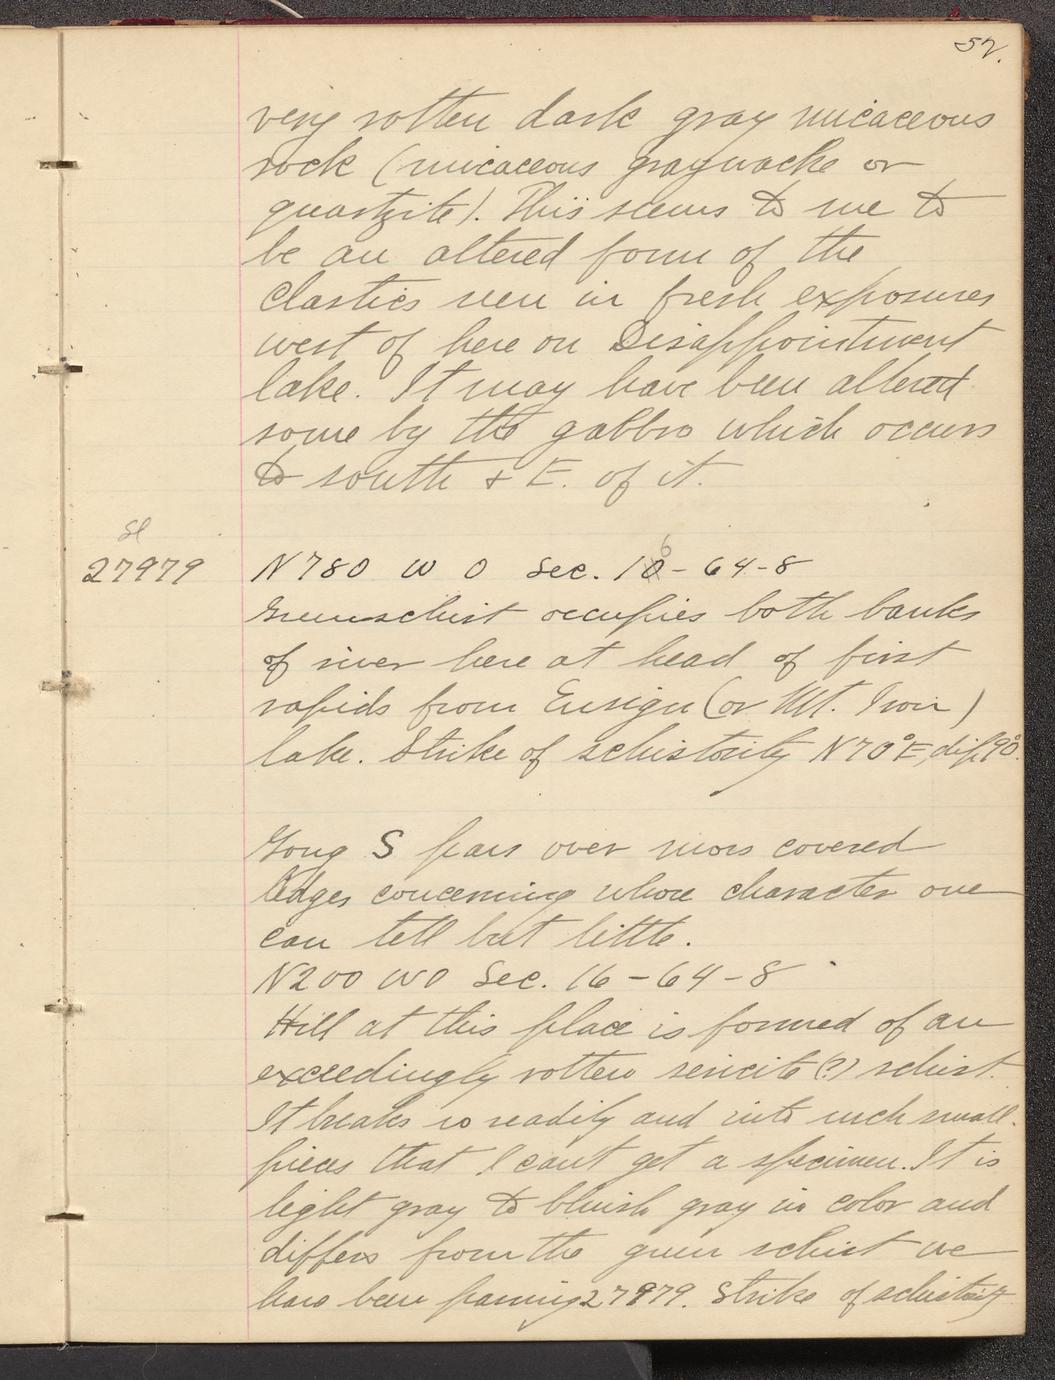 52.
very rotten dark gray micaceous
rock (micaceous graywacke or
quartzite). This seems to me to
be an altered form of the
clastics seen in fresh exposures
west of here on Disappointment
lake. It may have been altered
some by the gabbro which occurs
to south & E. of it.
Sl
27979 N780 W 0 Sec. 16-64-8
Greenschist occupies both banks
of river here at head of first
rapids from Ensign (or Mt. Iron)
lake. Strike of schistosity N70°E, dip 90°.
Going S pass over moss covered
ledges concerning whose character one
can tell but little.
N200 W0 Sec. 16-64-8
Hill at this place is formed of an
exceedingly rotten sericite (?) schist.
It breaks so readily and into such small
pieces that I cant get a specimen. It is
light gray to bluish gray in color and
differs from the green schist we
have been passing 27979. Strike of schistosity